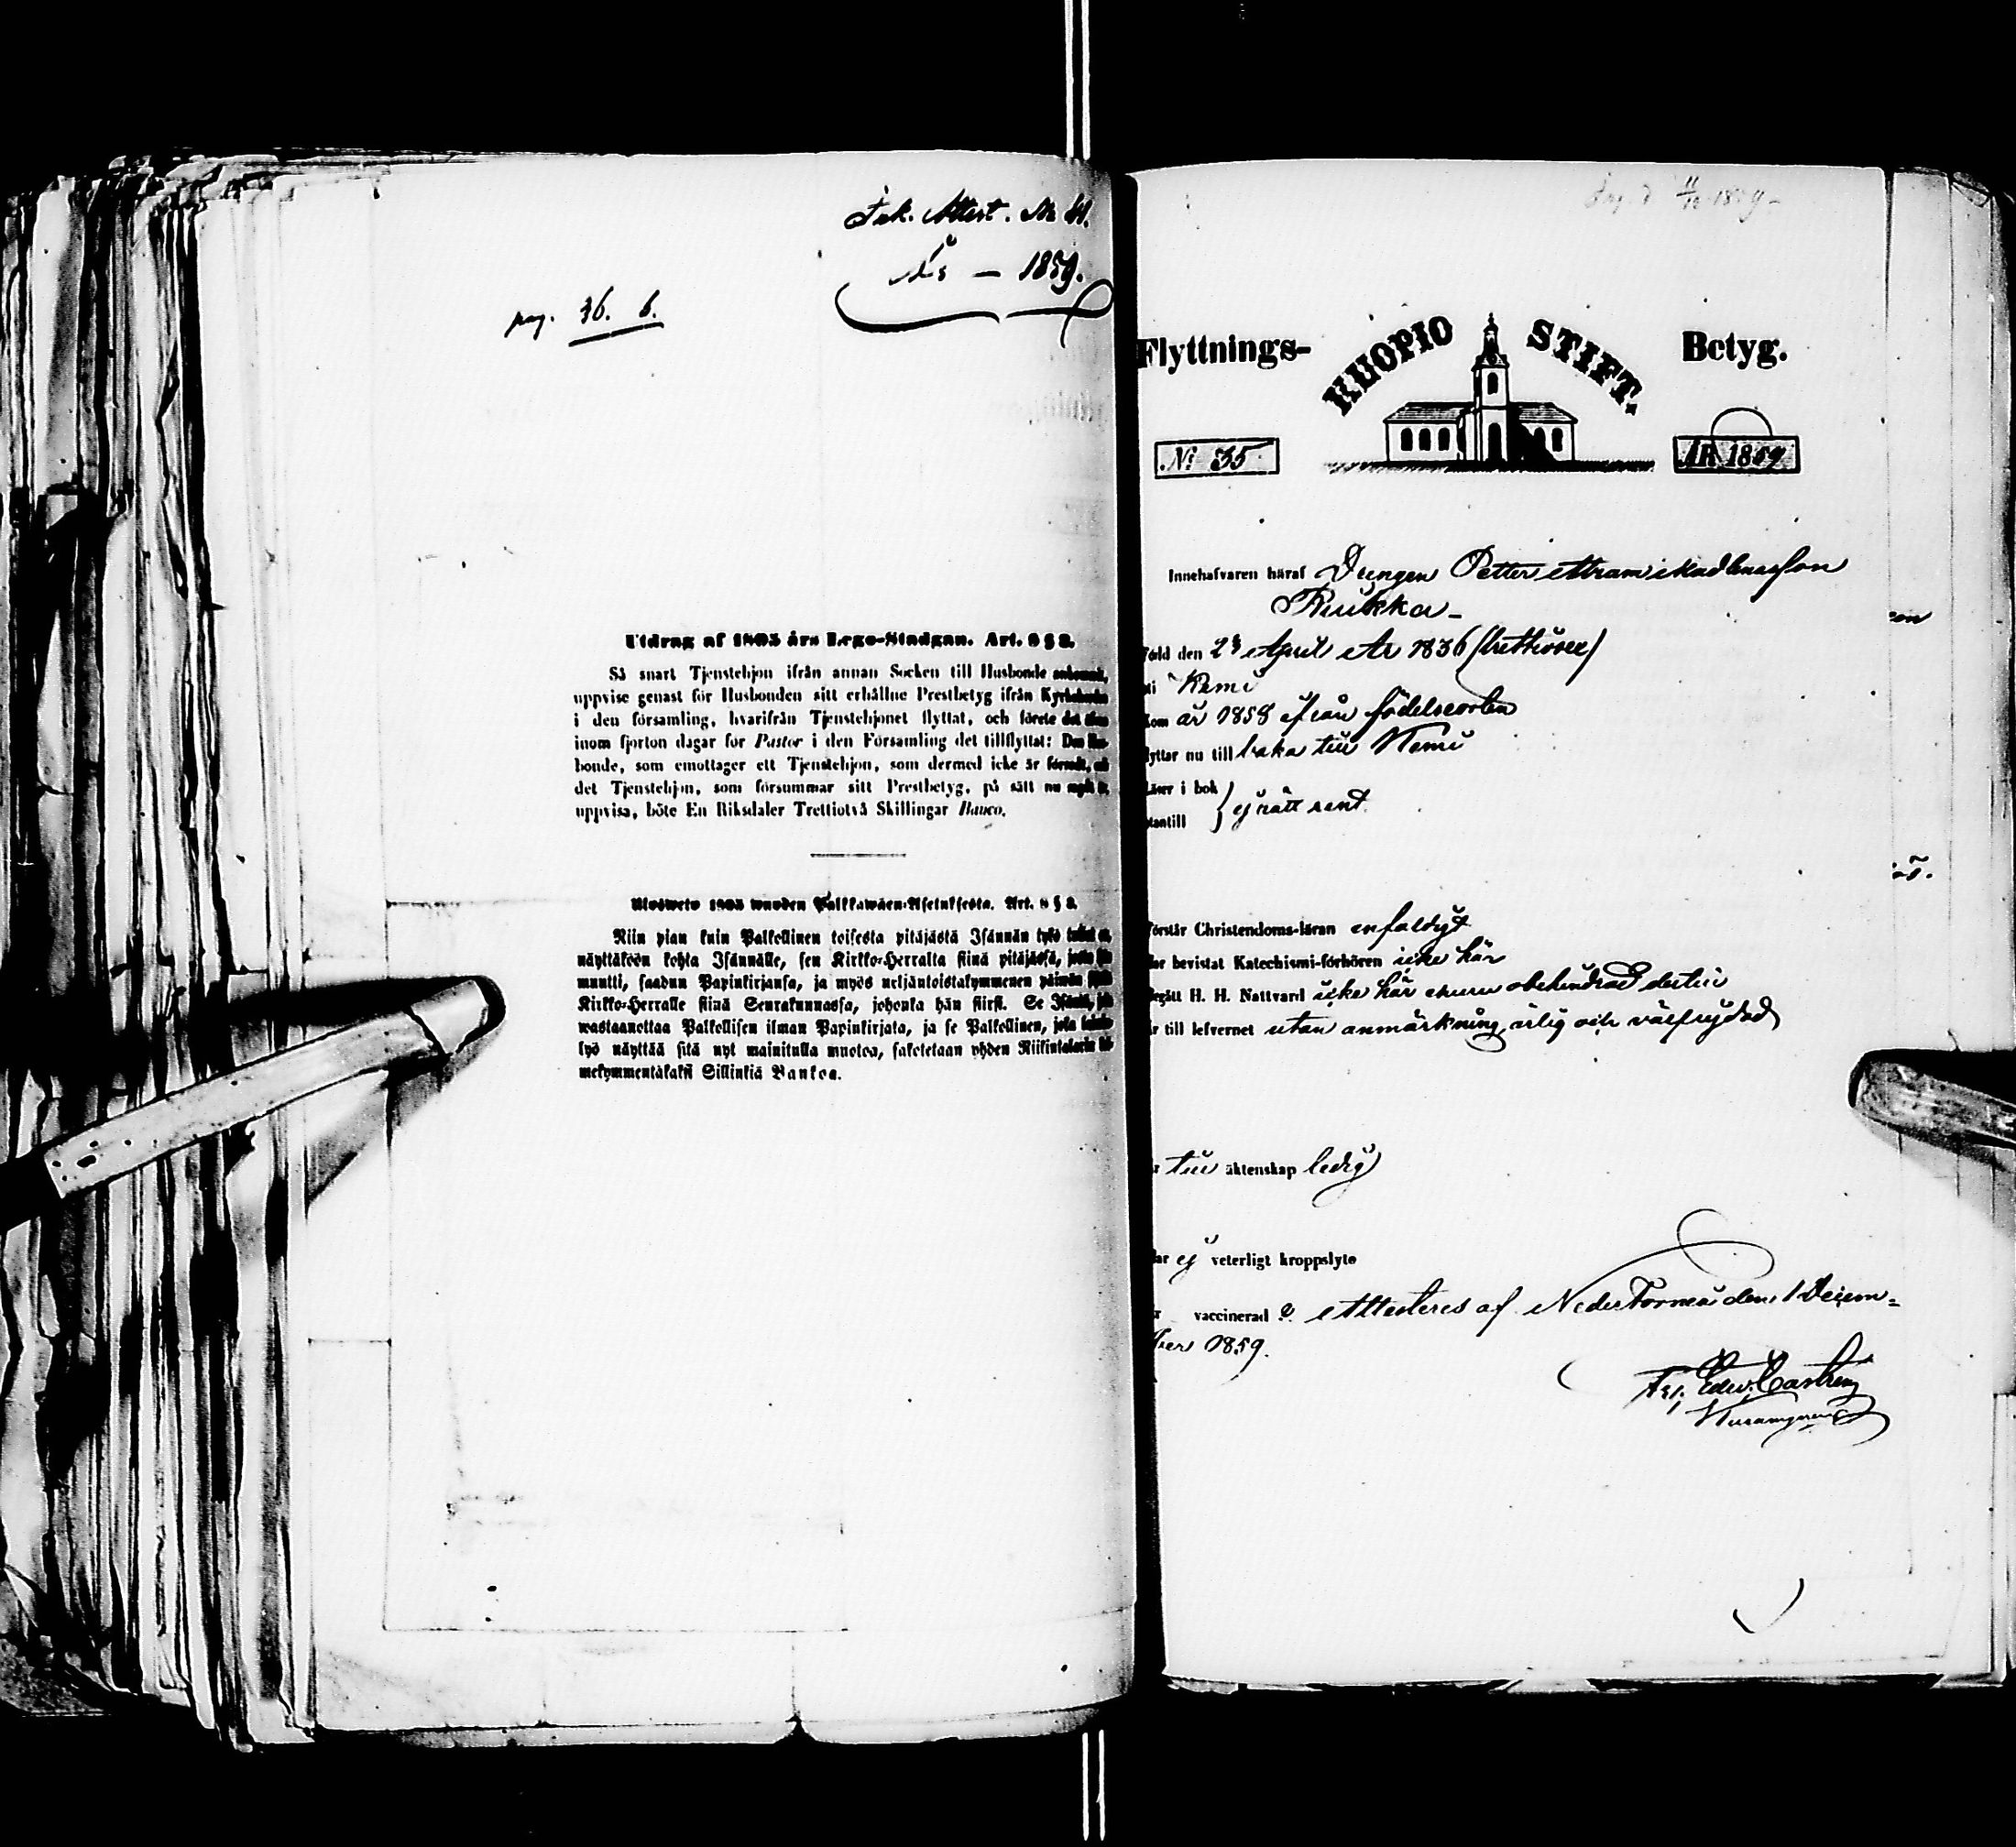 Ink. Attest. No 41.
års — 1859.
pag. 36. b.
Utdrag af 1805 års Lego-Stadgan. Art. 8 § 2.
Så snart Tjenstehjon ifrån annan Socken till Husbonde
uppvise genast för Husbonden sitt erhållne Prestbetyg ifrån
i den församling, hvarifrån Tjenstehjonet flyttat, och förete det
inom fjorton dagar för Pastor i den Församling det tillflyttat: Den
bonde, som emottager ett Tjenstehjon, som dermed icke är
det Tjenstehjon, som försummar sitt Prestbetyg, på sätt nu
uppvisa, böte En Riksdaler Trettiotvå Skillingar Banco.
Ulosweto 1805 wuoden Palkkawäen-Asetuksesta. Art. 8 § 2.
Niin pian kuin Palkollinen toisesta pitäjästä Isännän työ
näyttäköön kohta Isännälle, sen Kirkko-Herralta siinä pitäjässä,
muutti, saadun Papinkirjansa, ja myös neljäntoistakymmenen päiwän
Kirkko-Herralle siinä Seurakunnassa, johonka hän siirsi. Se
wastaanottaa Palkollisen ilman Papinkirjata, ja se Palkollinen, jota
lyö näyttää sitä nyt mainitulla muotoa, sakotetaan yhden
mekymmentäkaksi Sillinkiä Bankoa.
1859
Flyttnings- KUOPIO STIFT. Betyg.
No 35 ÅR 1859
Innehafvaren häraf Drengen Petter
Ruikka
född den April År 1836 (trettiosex)
i Kemi
kom år 1858 ifrån födelseorten
flyttar nu till baka till Kemi
Läser i bok
utantill } ej rätt rent
förstår Christendoms-läran enfaldigt
har bevistat Katechismi-förhören icke här
Begått H. H. Nattvard icke här obehindrad dertill
är till lefvernet utan anmärkning ärlig och välfrejdad
är till äktenskap ledig
har ej veterligt kroppslyte
är vaccinerad attesteras af Neder Torneå den 1 Decem=
ber 1859.
Edw. Castrén